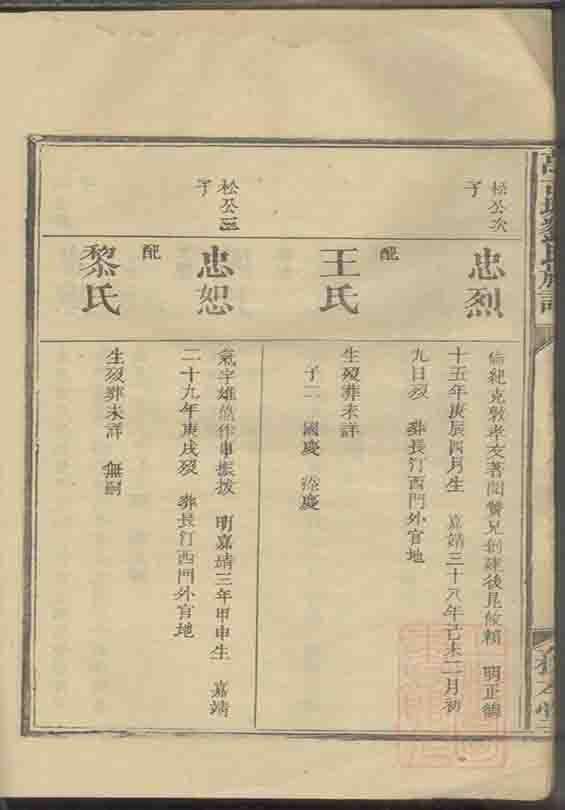 氏族譜
松公次子
忠烈
倫紀克敦孝友著聞贊兄創建後昆攸賴 明正德
十五年庚辰四月生 嘉靖三十八年己未二月初
九日歿 葬長汀西門外官地
配
王氏
生歿葬未詳
子二 國慶 慶
松公三子
忠恕
氣宇雄偉作事振拔 明嘉靖三年甲申生 嘉靖
二十九年庚戌歿 葬長汀西門外官地
配
黎氏
生歿葬未詳 無嗣